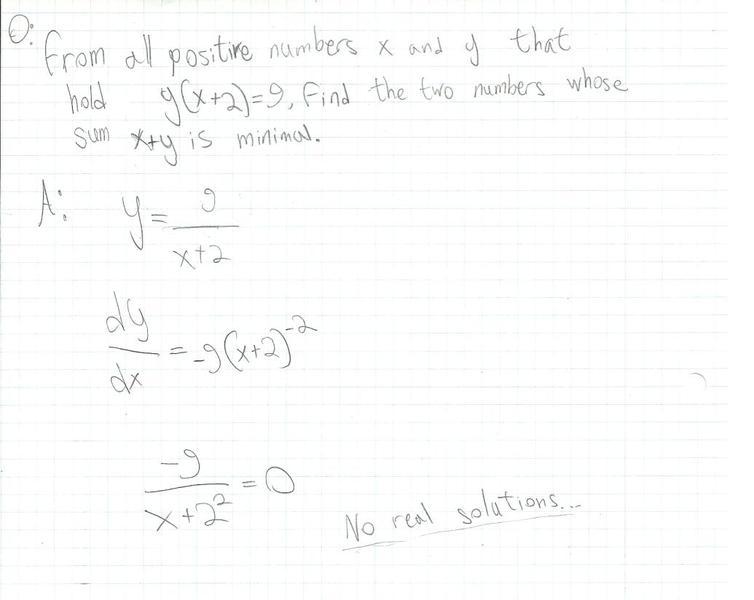 Q: From all positive numbers x and y that
hold y(x+2)=9, Find the two numbers whose
sum x+y is minimal.
A: y = 9/(x+2)
dy/dx = -9(x+2)^-2
-9/(x+2^2) = 0
No real solutions...